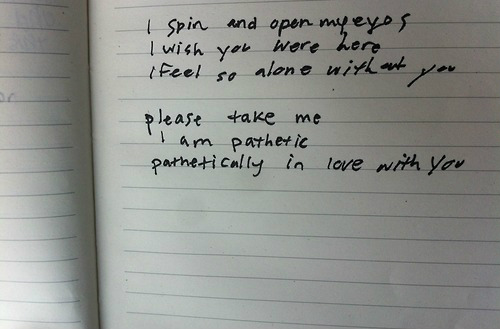 I spin and open my eyes
I wish you were here
I feel so alone without you
please take me
I am pathetic
pathetically in love with you